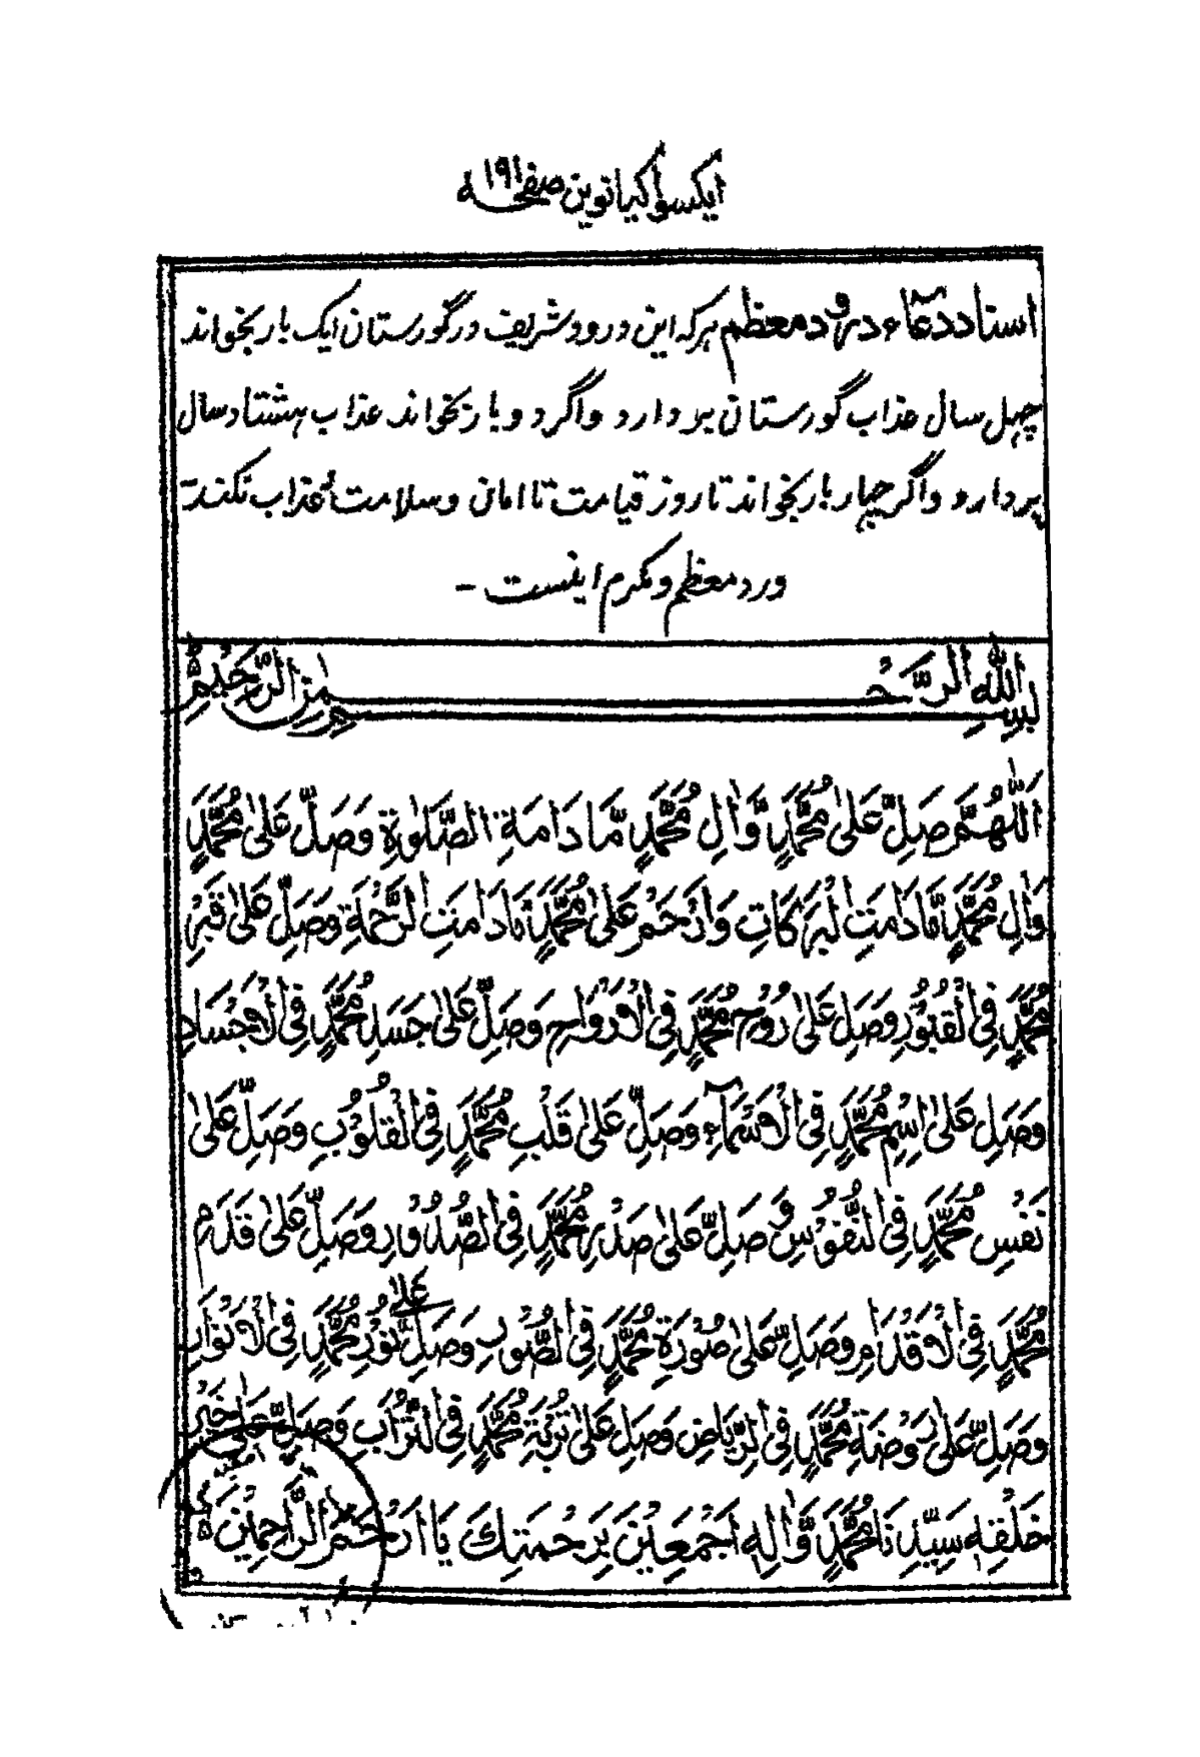 ایکسو اکیانوین صفحہ ۱۹۱
اسناد دعاء درود معظم ہرکہ این درود شریف در گورستان ایک بار بخواند
چہل سال عذاب گورستان بردارد واگر دو بار بخواند عذاب ہشتاد سال
بردارد واگر چہار بار بخواند تا روز قیامت تا امان و سلامت عذاب نکند
ورد معظم و مکرم اینست -
بِسْمِ اللّٰهِ الرَّحْمٰنِ الرَّحِيْمِ
اَللّٰهُمَّ صَلِّ عَلٰى مُحَمَّدٍ وَّاٰلِ مُحَمَّدٍ مَّا دَامَةِ الصَّلٰوةِ وَصَلِّ عَلٰى مُحَمَّدٍ
وَاٰلِ مُحَمَّدٍ مَّا دَامَتِ الْبَرَكَاتِ وَارْحَمْ عَلٰى مُحَمَّدٍ مَّا دَامَتِ الرَّحْمَةِ وَصَلِّ عَلٰى قَبْرِ
مُحَمَّدٍ فِى الْقُبُوْرِ وَصَلِ عَلٰى رُوْحِ مُحَمَّدٍ فِى الْاَرْوَاحِ وَصَلِّ عَلٰى جَسَدِ مُحَمَّدٍ فِى الْاَجْسَادِ
وَصَلِ عَلٰى اسْمِ مُحَمَّدٍ فِى الْاَسْمَآءِ وَصَلِّ عَلٰى قَلْبِ مُحَمَّدٍ فِى الْقُلُوْبِ وَصَلِّ عَلٰى
نَفْسِ مُحَمَّدٍ فِى النُّفُوْسِ وَصَلِّ عَلٰى صَدْرِ مُحَمَّدٍ فِى الصُّدُوْرِ وَصَلِّ عَلٰى قَدَمِ
مُحَمَّدٍ فِى الْاَقْدَامِ وَصَلِّ عَلٰى صُوْرَةِ مُحَمَّدٍ فِى الصُّوَبِ وَصَلِّ عَلٰى نُوْرِ مُحَمَّدٍ فِى الْاَنْوَارِ
وَصَلِّ عَلٰى رَوْضَةِ مُحَمَّدٍ فِى الرِّيَاضِ وَصَلِ عَلٰى تُرْبَةِ مُحَمَّدٍ فِى التُّرَابِ وَصَلِّ عَلٰى خَيْرِ
خَلْقِهٖ سَيِّدِنَا مُحَمَّدٍ وَّاٰلِهٖ اَجْمَعِيْنَ بِرَحْمَتِكَ يَا اَرْحَمَ الرَّاحِمِيْنَ